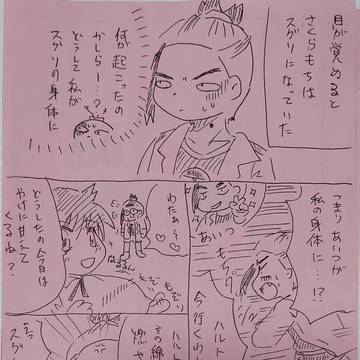 目が覚めると
さくらもちは
スグリになっていた
何が起こったの
かしらー…?
どうして私が
スグリの身体に
つまりあいつが
私の身体に…!?
あいつ
ハルト
今行くわ
わたぁ〜
どうしたの今日は
やけに甘えて
くるね?
もどり
ハルト
その綿
燃や
スグ